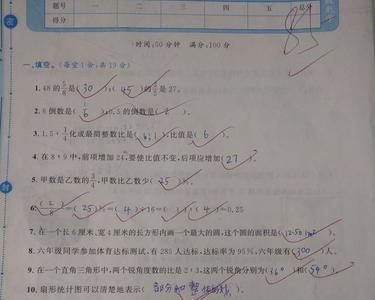 密
题号 一 二 三 四 五 总分
得分
时间:50分钟 满分:100分
一、填空。(每空1分,共19分)
1.48的5/8是(30),(45)的3/5是27。
2.6倒数是(1/6),0.5的倒数是(2)。
3.1.5∶1/4化成最简整数比是(6:1),比值是(6)。
4.在8∶9中,前项增加24,要使比值不变,后项应增加(27)。
5.甲数是乙数的3/4,甲数比乙数少(25)%。
6.(2)/8=(25)%=(4)÷16=( )∶( )=0.25
7.在一个长6厘米,宽4厘米的长方形内画一个最大的圆,这个圆的面积是(12.56cm²)。
8.六年级同学参加体育达标测试,有285人达标,达标率为95%,六年级有(300)人。
9.在一个直角三角形中,两个锐角度数的比是2∶3,这两个锐角分别为(36°)和(54°)。
封
扇形统计图可以清楚地表示(部分和整体的